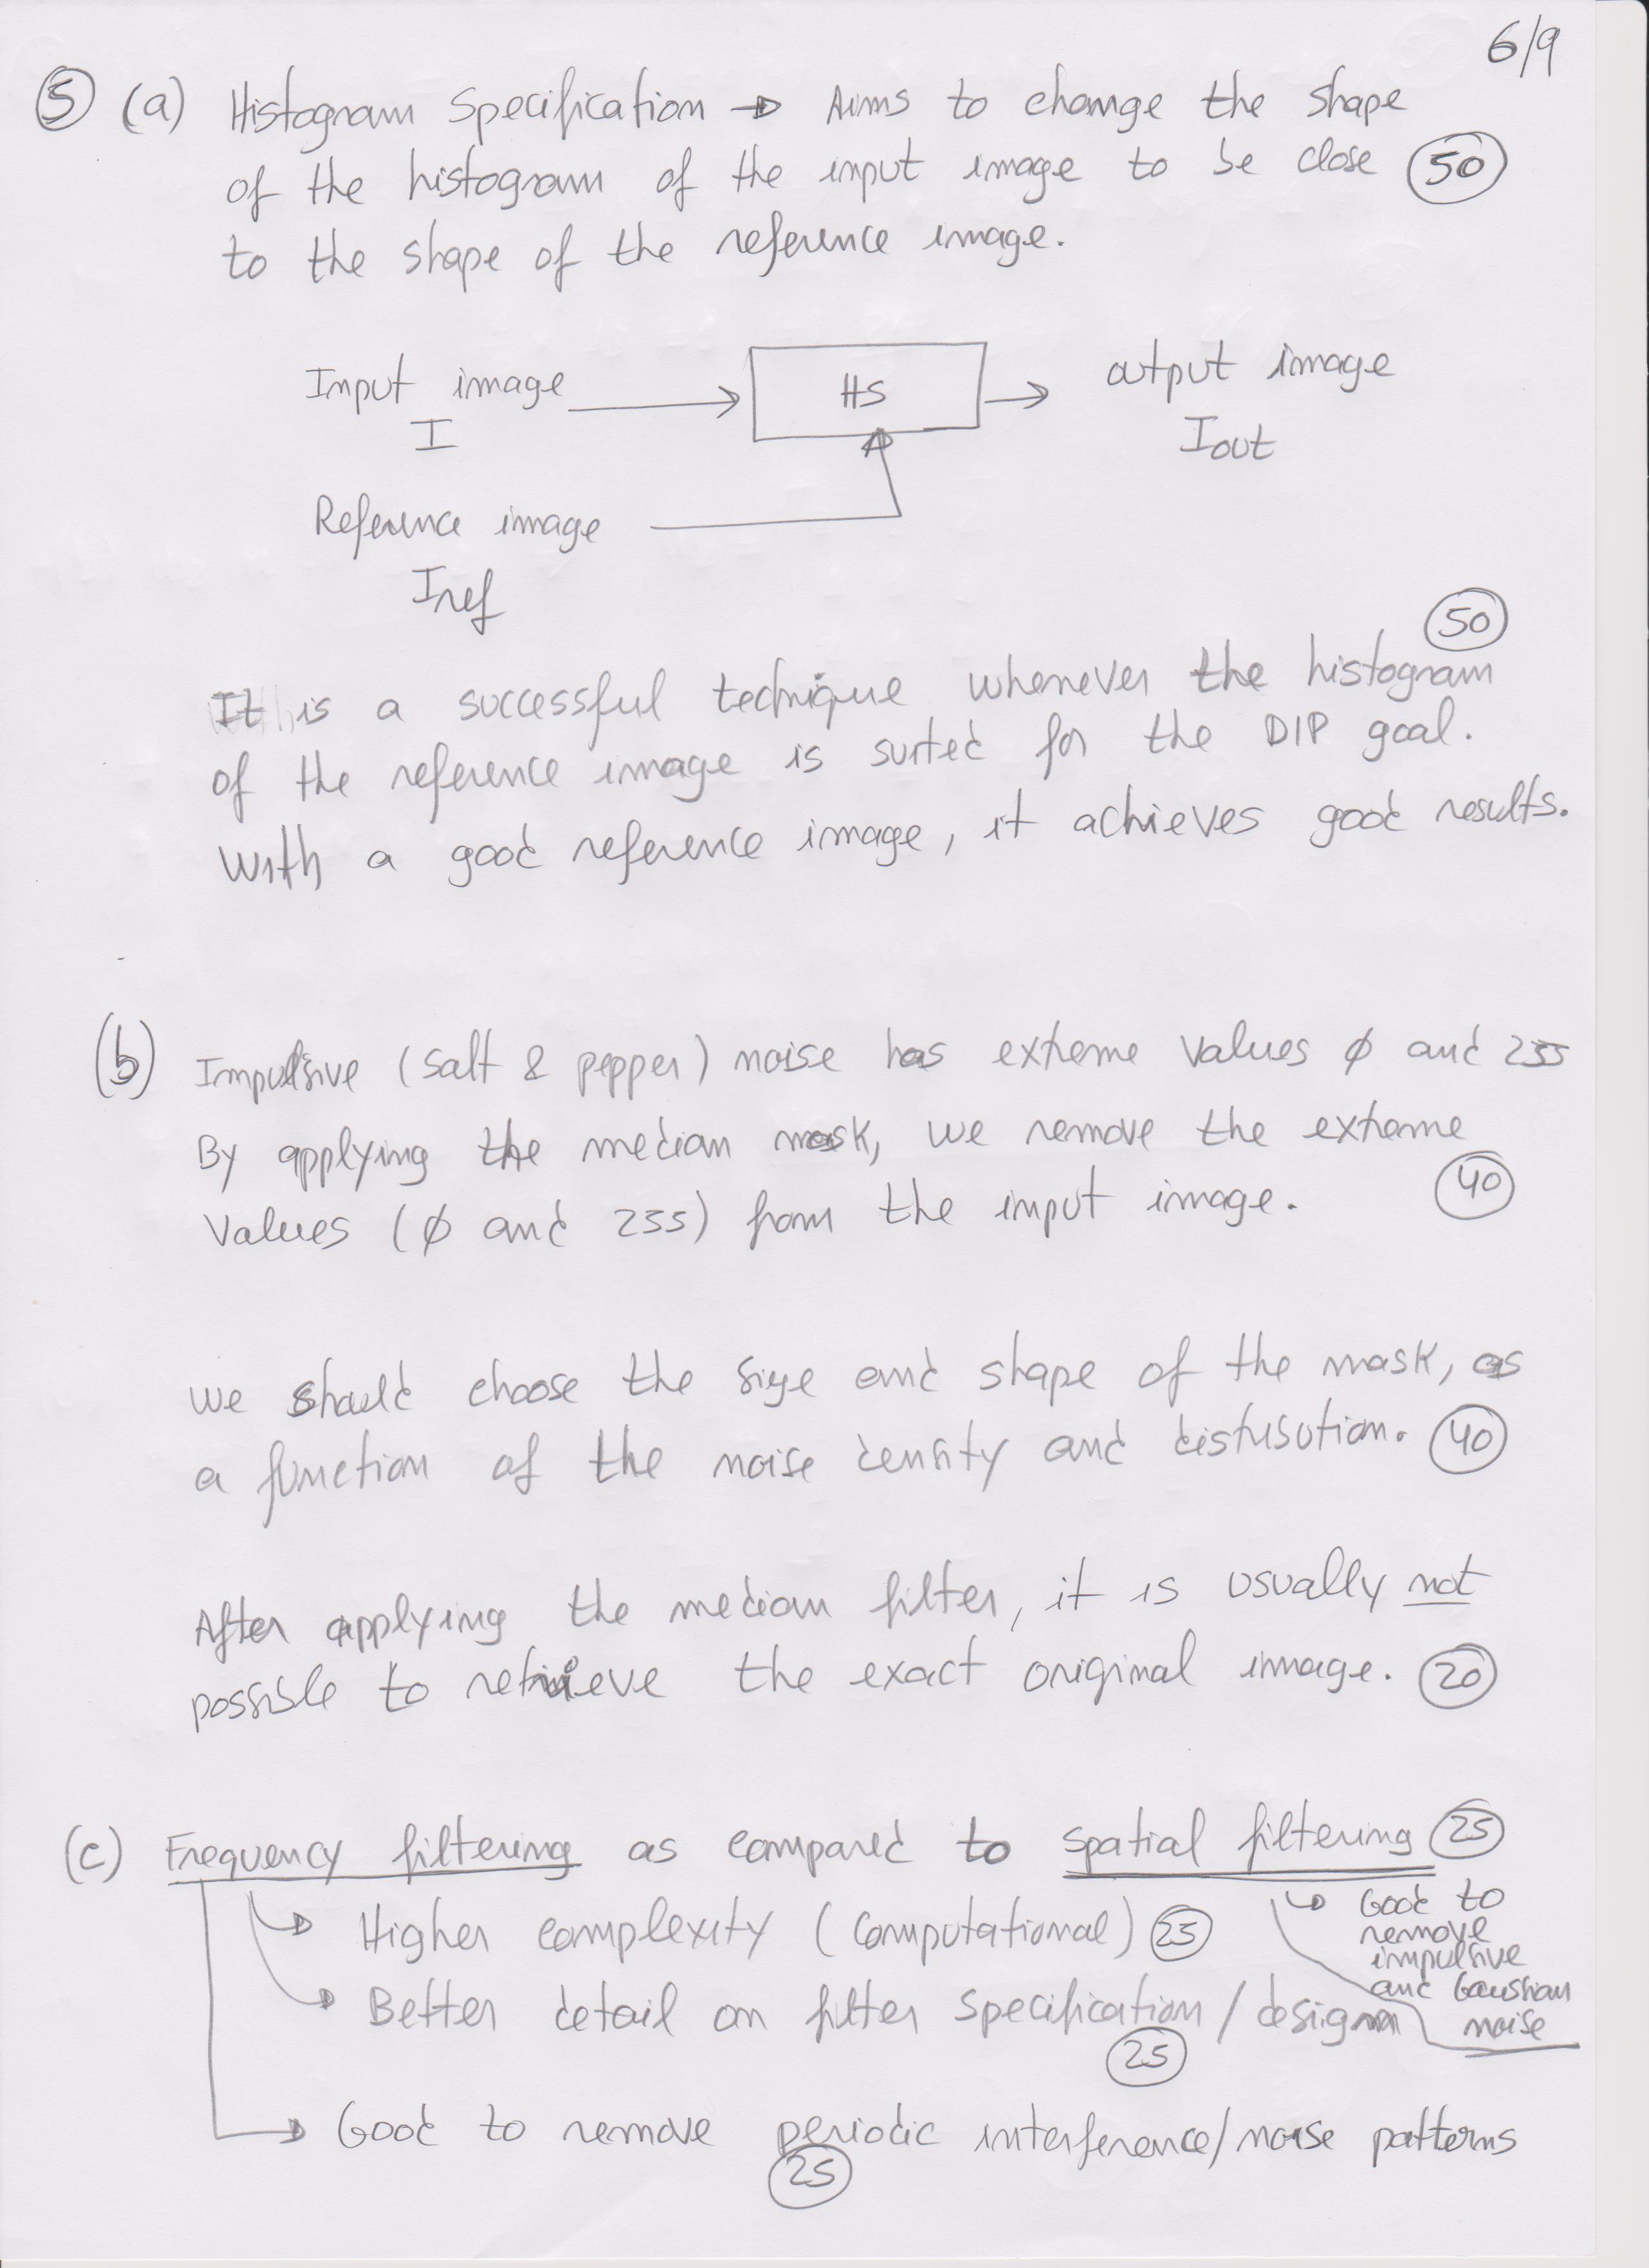 6/9
5 (a) Histogram Specification → Aims to change the shape
of the histogram of the input image to be close 50
to the shape of the reference image.
Input image HS output image
I Iout
Reference image
Iref
50
It is a successful technique whenever the histogram
of the reference image is suited for the DIP goal.
With a good reference image, it achieves good results.
(b) Impulsive (salt & pepper) noise has extreme values ∅ and 255
By applying the median mask, we remove the extreme
values (∅ and 255) from the input image. 40
We should choose the size and shape of the mask, as
a function of the noise density and distribution. 40
After applying the median filter, it is usually not
possible to retrieve the exact original image. 20
(c) Frequency filtering as compared to spatial filtering 25
→ Higher complexity (computational) 25
→ Good to
remove
impulsive
and Gaussian
noise
→ Better detail on filter specification/design
25
→ Good to remove periodic interference/noise patterns
25